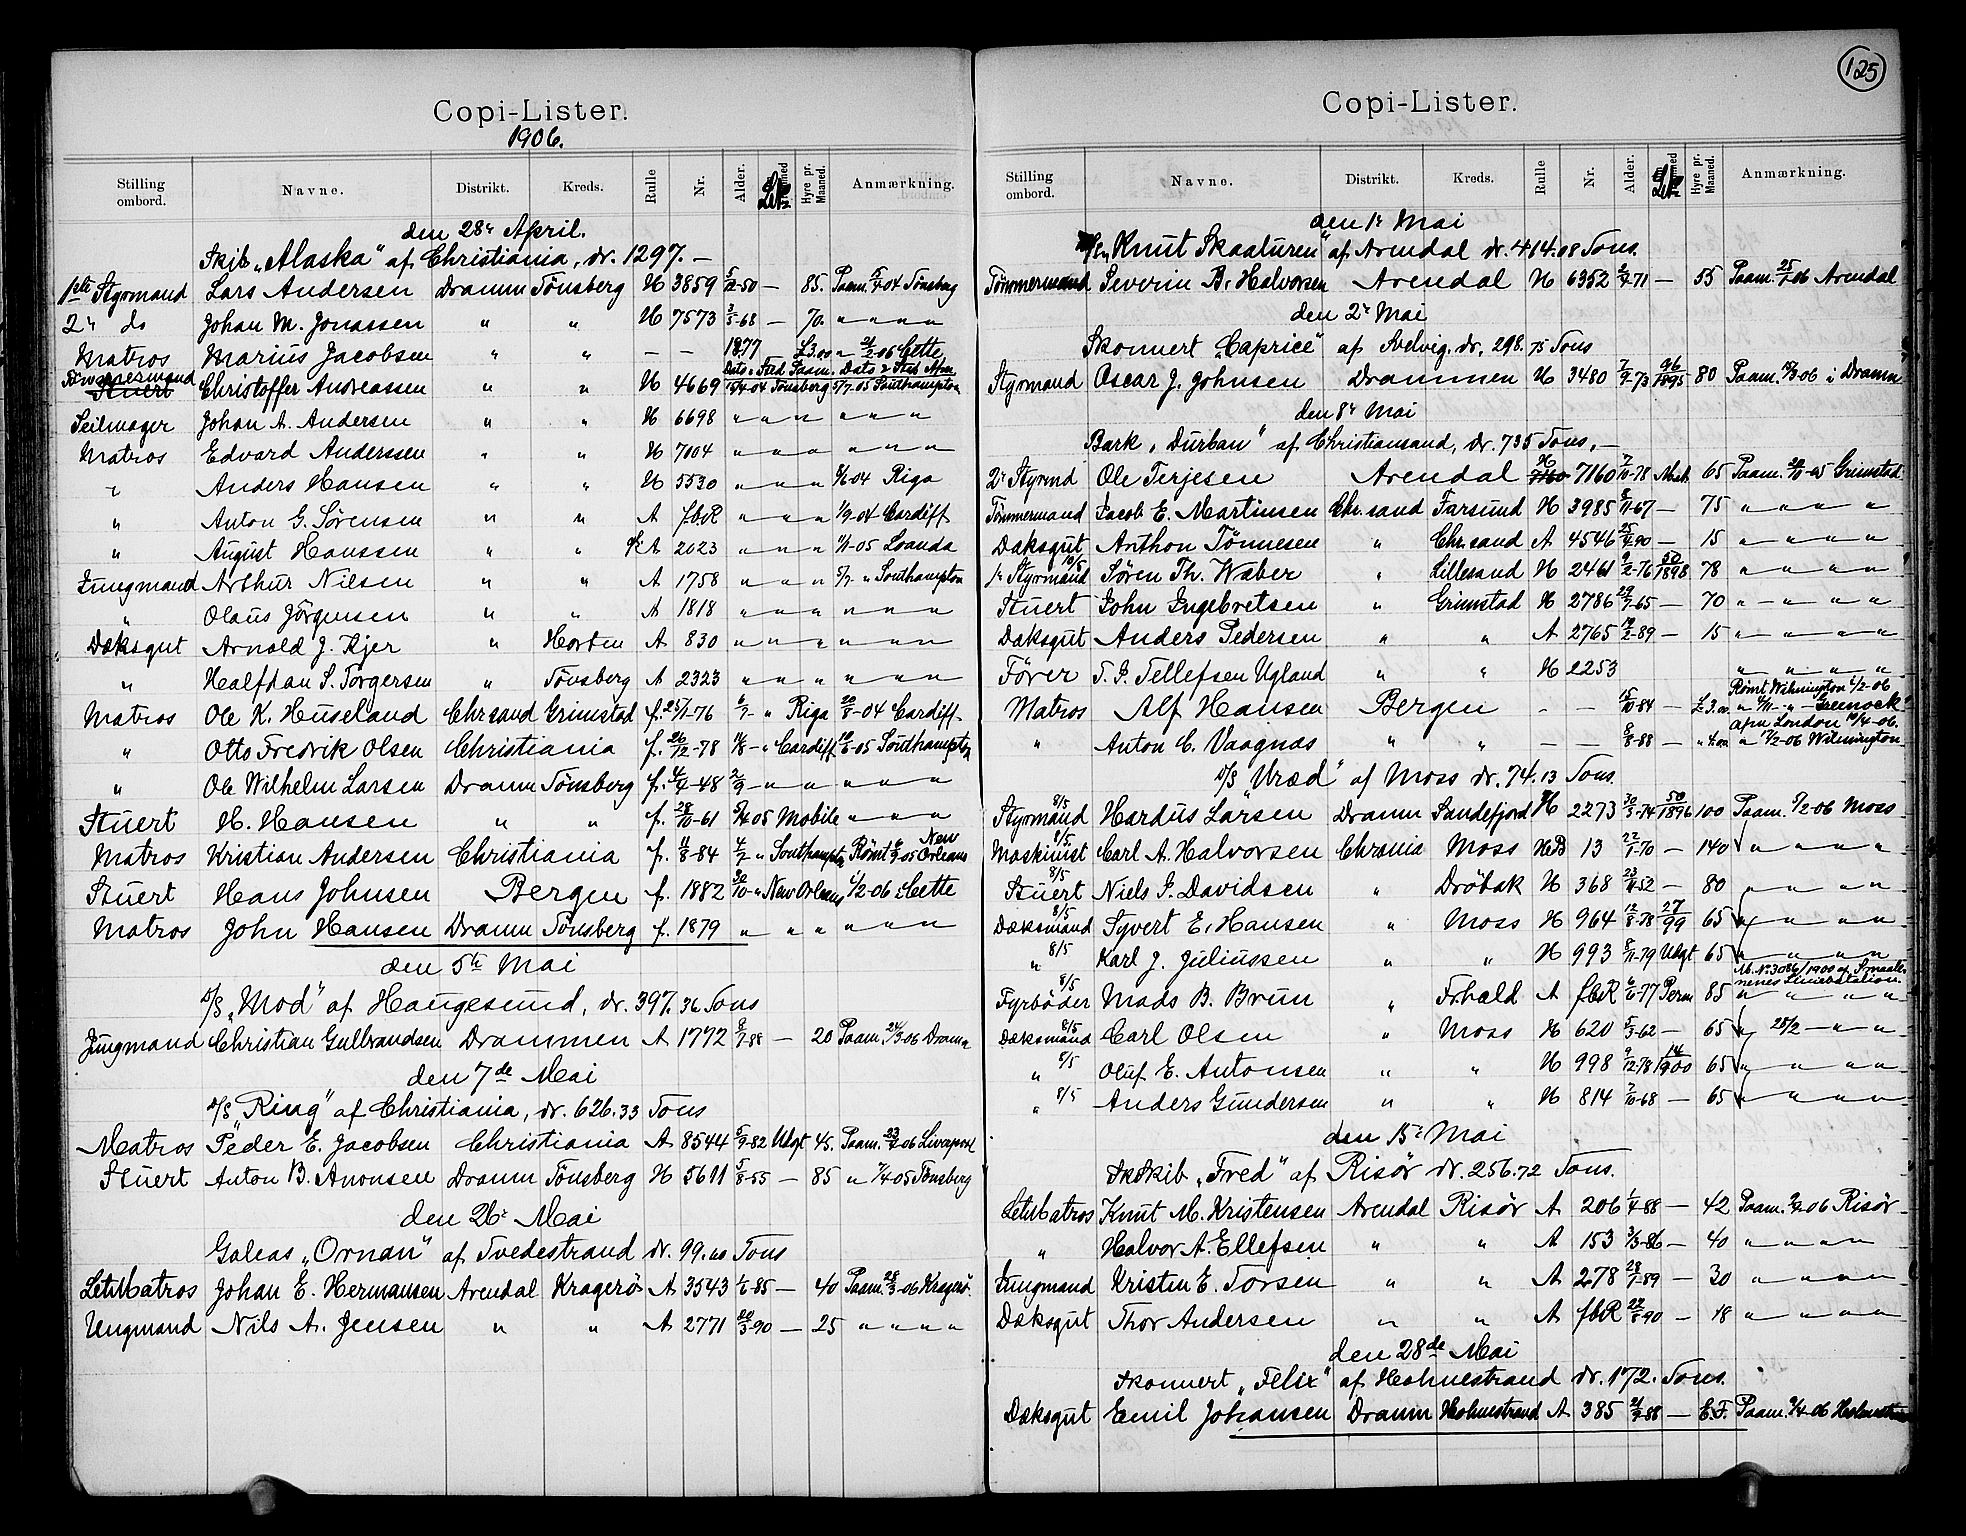 Copi-Lister.
1906.
Stilling ombord. Navne. Distrikt. Kreds. Rulle Nr. Alder. Hyre pr. Maaned. Anmærkning.
den 28' April.
Skib „Alaska" af Christiania, dr. 1297. —
1ste Styrmand Lars Andersen Dramm Tönsberg H 3859 5/12-50 — 85. Paam. 5/7-04 Tönsberg
2' do Johan M. Jonassen " " H 7573 3/5-68 — 70. " " " "
Matros Marius Jacobsen " " — — 1877 £3.00 " 21/2-06 Cette
Tömmermand Christoffer Andreassen " " H 4669 15/7-04 Tönsberg 5/7-05 Southampton
Seilmager Johan A. Andersen " " H 6698 " " " " " "
Matros Edvard Anderssen " " H 7004 " " " " " "
" Anders Hansen " " H 5530 " " " 6/8-04 Riga
" Anton G. Sørensen " " A fbR " " " 1/9-04 Cardiff
" August Hanssen " " A 2023 " " " 11/1-05 Loanda
Jungmand Arthur Nilsen " " A 1758 " " " 5/7 " Southampton
" Olaus Jörgensen " " A 1818 " " " " " "
Dæksgut Arnold J. Kjer " Horten A 830 " " " " " "
" Halfdan S. Torgersen " Tönsberg A 2323 " " " " " "
Matros Ole K. Huseland Chrsand Grimstad f. 25/1-76 6/7- " Riga 20/8-04 Cardiff
" Otto Fredrik Olsen Christiania f. 26/12-78 16/8- " Cardiff 19/6-05 Southampton
" Ole Wilhelm Larsen Dramm Tönsberg f. 4/4-48 2/9 " " " " "
Stuert H. Hansen " " f. 28/10-61 5/4 05 Mobile " " "
Matros Kristian Andersen Christiania f. 11/8-84 4/7 " Southampton Römt 6/9-05 New Orleans
Stuert Hans Johnsen Bergen f. 1882 30/10- " New Orleans 6/2-06 i Cette
Matros John Hansen Dramm Tönsberg f. 1879 " " " " " "
den 5te Mai
D/S „Mod" af Haugesund, dr. 397.36 Tons
Jungmand Christian Gulbrandsen Drammen A 1772 8/7-88 — 20 Paam. 24/3-06 Dramn
den 7de Mai
D/S „Ring" af Christiania, dr. 626.33 Tons
Matros Peder E. Jacobsen Christiania A 8544 5/9-82 Udgt 45. Paam. 23/4-06 Liverpool
Stuert Anton B. Anonsen Dramm Tönsberg H 5611 5/8-55 — 85 " 7/4 05 Tönsberg
den 26' Mai
Galeas „Ornan" af Tvedestrand dr. 99.60 Tons
LetMatros Johan E. Hermansen Arendal Kragerö A 3543 1/6-85 — 40 Paam. 28/3-06 Kragerö.
Ungmand Nils A. Jensen " " A 2771 20/3-90 — 25 " " " "
125
Copi-Lister.
Stilling ombord. Navne. Distrikt. Kreds. Rulle Nr. Alder. Hyre pr. Maaned. Anmærkning.
den 1' Mai
„Knut Skaaluren" af Arendal dr. 464.08 Tons.
Tömmermand Severin B. Halvorsen Arendal H 6352 2/4-71 — 55 Paam. 25/4-06 Arendal
den 2' Mai
Skonnert „Caprice" af Svelvig. dr. 298.75 Tons
Styrmand Oscar J. Johnsen Drammen H 3480 7/9-73 96/1895 80 Paam. 10/3-06 i Dramn
den 8' Mai
Bark „Durban" af Christiansand, dr. 735 Tons. —
2' Styrmd Ole Terjesen Arendal H 7160 7/10-78 65 Paam. 20/11-05 Grimstad
Tömmermand Jacob E. Martinsen Chr.sand Farsund H 3985 8/11-67 — 75 " " " "
Dæksgut Anthon Tönnesen " Chr.sand A 4546 25/4-90 — 15 " " " "
1' Styrmand 10/5 Søren Th. Wæber " Lillesand H 2461 9/2-76 50/1898 78 " " " "
Stuert John Engebretsen " Grimstad H 2786 22/7-65 — 70 " " " "
Dæksgut Anders Pedersen " " A 2765 19/2-89 — 15 " " " "
Förer T. G. Tellefsen Ugland " " H 2253 " " " "
Matros Alf Hansen Bergen — — 15/10-84 — £3.00 Rømt Wilmington 6/2-06 " Greenock
" Anton C. Vaagnæs " " — — 8/8-88 — " afm London 10/4-06. " 17/2-06 Wilmington
D/S „Uræd" af Moss dr. 74.13 Tons.
Styrmand 8/5 Hardus Larsen Dramm Sandefjord H 2273 30/3-74 50/1896 100 Paam. 7/2-06 Moss
Maskinist 8/5 Carl A. Halvorsen Chrania Moss HB 13 22/1-70 — 140 " " " "
Stuert 8/5 Niels G. Davidsen " Dröbak H 368 23/11-52 — 80 " " " "
Dæksmand 8/5 Syvert E. Hansen " Moss H 964 12/8-78 27/99 65 " " " "
" 8/5 Karl J. Juliussen " " H 993 8/11-79 Udgt 65 " " " "
Fyrbøder 8/5 Mads B. Brun " Fr.hald A fbR 6/6-77 Perm 85 M. N. 3086/1900 af Smaalenenes " " " "
Dæksmand 8/5 Carl Olsen " Moss H 620 5/3-62 — 65 " 28/2 — " "
" 8/5 Oluf E. Antonsen " " H 998 9/12-78 14/1900 65 " " " "
" 8/5 Anders Gundersen " " H 814 7/10-68 — 65 " " " "
den 15' Mai
SkSkib „Fred" af Risör dr. 256.72 Tons.
LetMatros Knut M. Kristensen Arendal Risör A 206 1/4-88 — 42 Paam. 2/4-06 Risör
" Halvor A. Ellefsen " " A 153 3/3-86 — 40 " " " "
Jungmand Kristen E. Torsen " " A 278 28/1-89 — 30 " " " "
Dæksgut Thor Andersen " " A fbR 22/5-90 — 18 " " " "
den 28de Mai
Skonnert „Felix" af Holmestrand dr. 172. Tons.
Dæksgut Emil Johansen Dramm Holmestrand A 385 21/9-88 — E.F. Paam. 3/4-06 Holmestrand